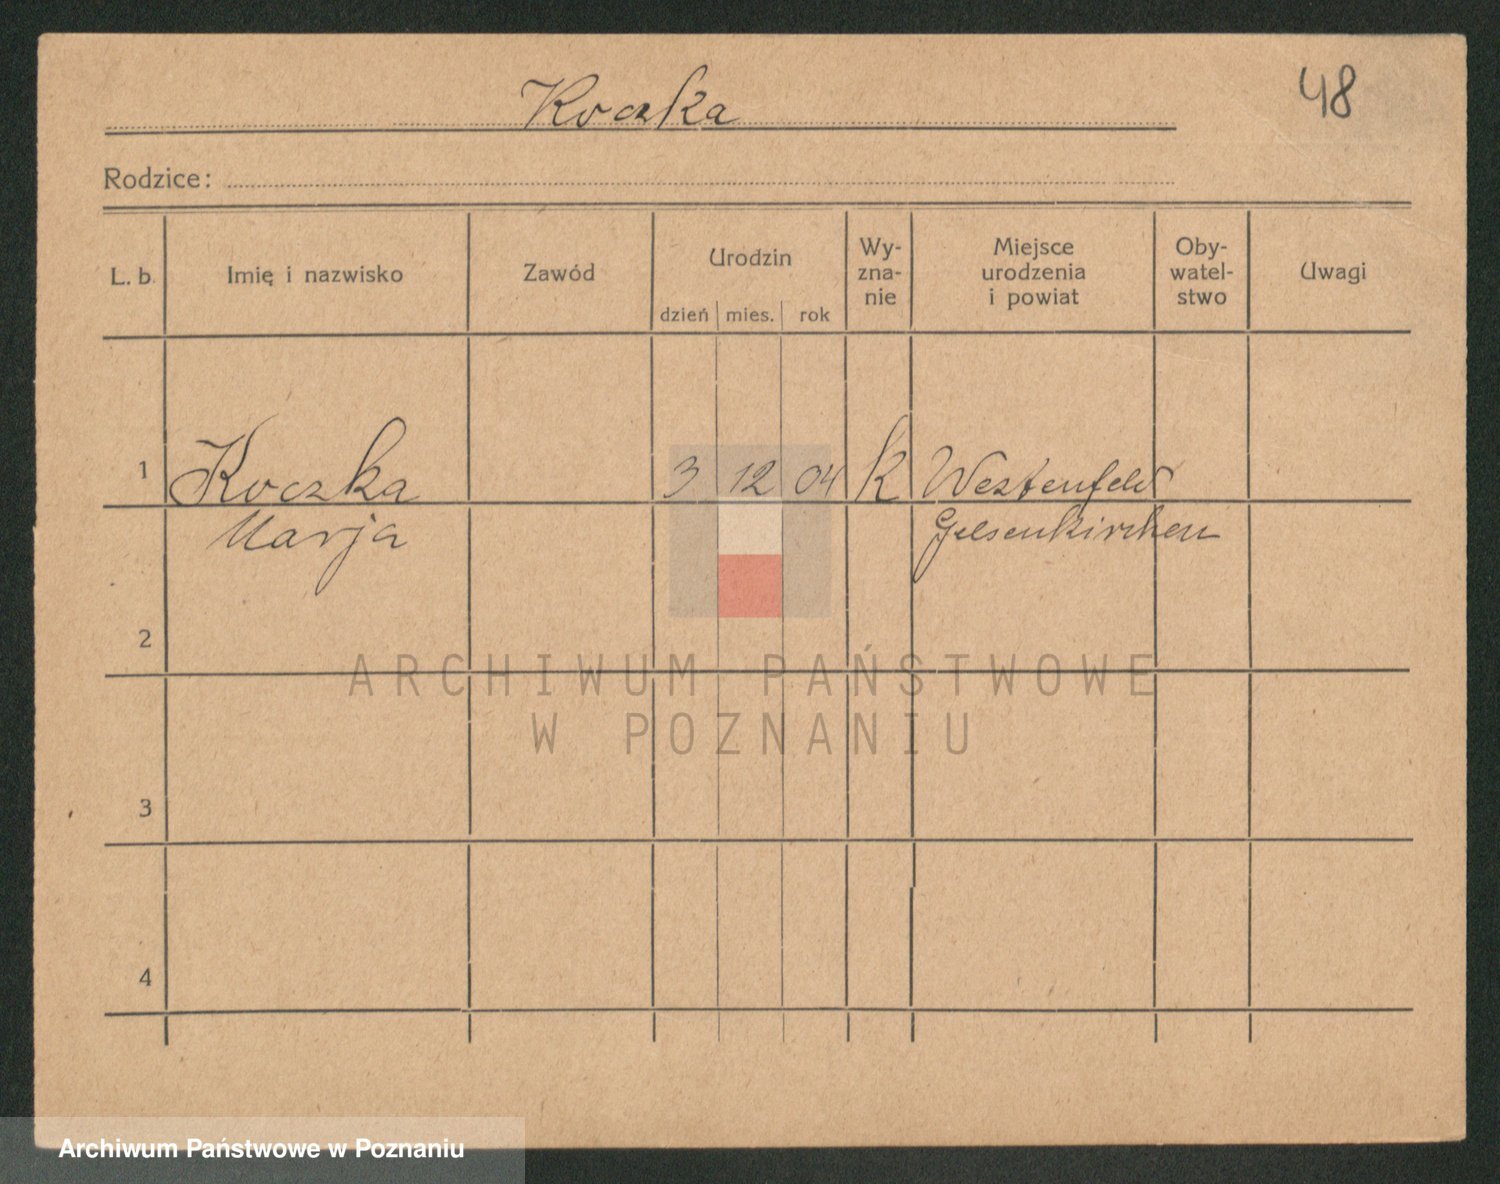 Koczka
48
Rodzice:
L. b. Imię i nazwisko Zawód Urodzin dzień mies. rok Wy-zna-nie Miejsce urodzenia i powiat Oby-watel-stwo Uwagi
1 Koczka 3 12 04 k Westenfeld
Marja Gelsenkirchen
2
ARCHIWUM PAŃSTWOWE
W POZNANIU
3
4
Archiwum Państwowe w Poznaniu